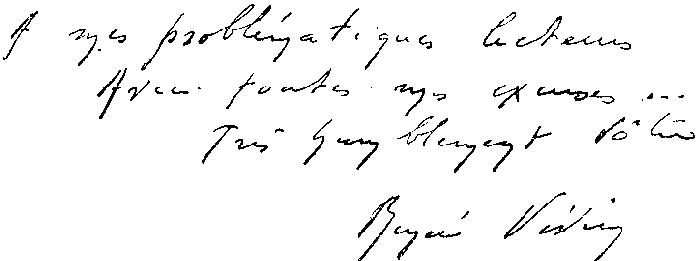 A mes problématiques lecteurs
Avec toutes mes excuses ...
Très humblement vôtre